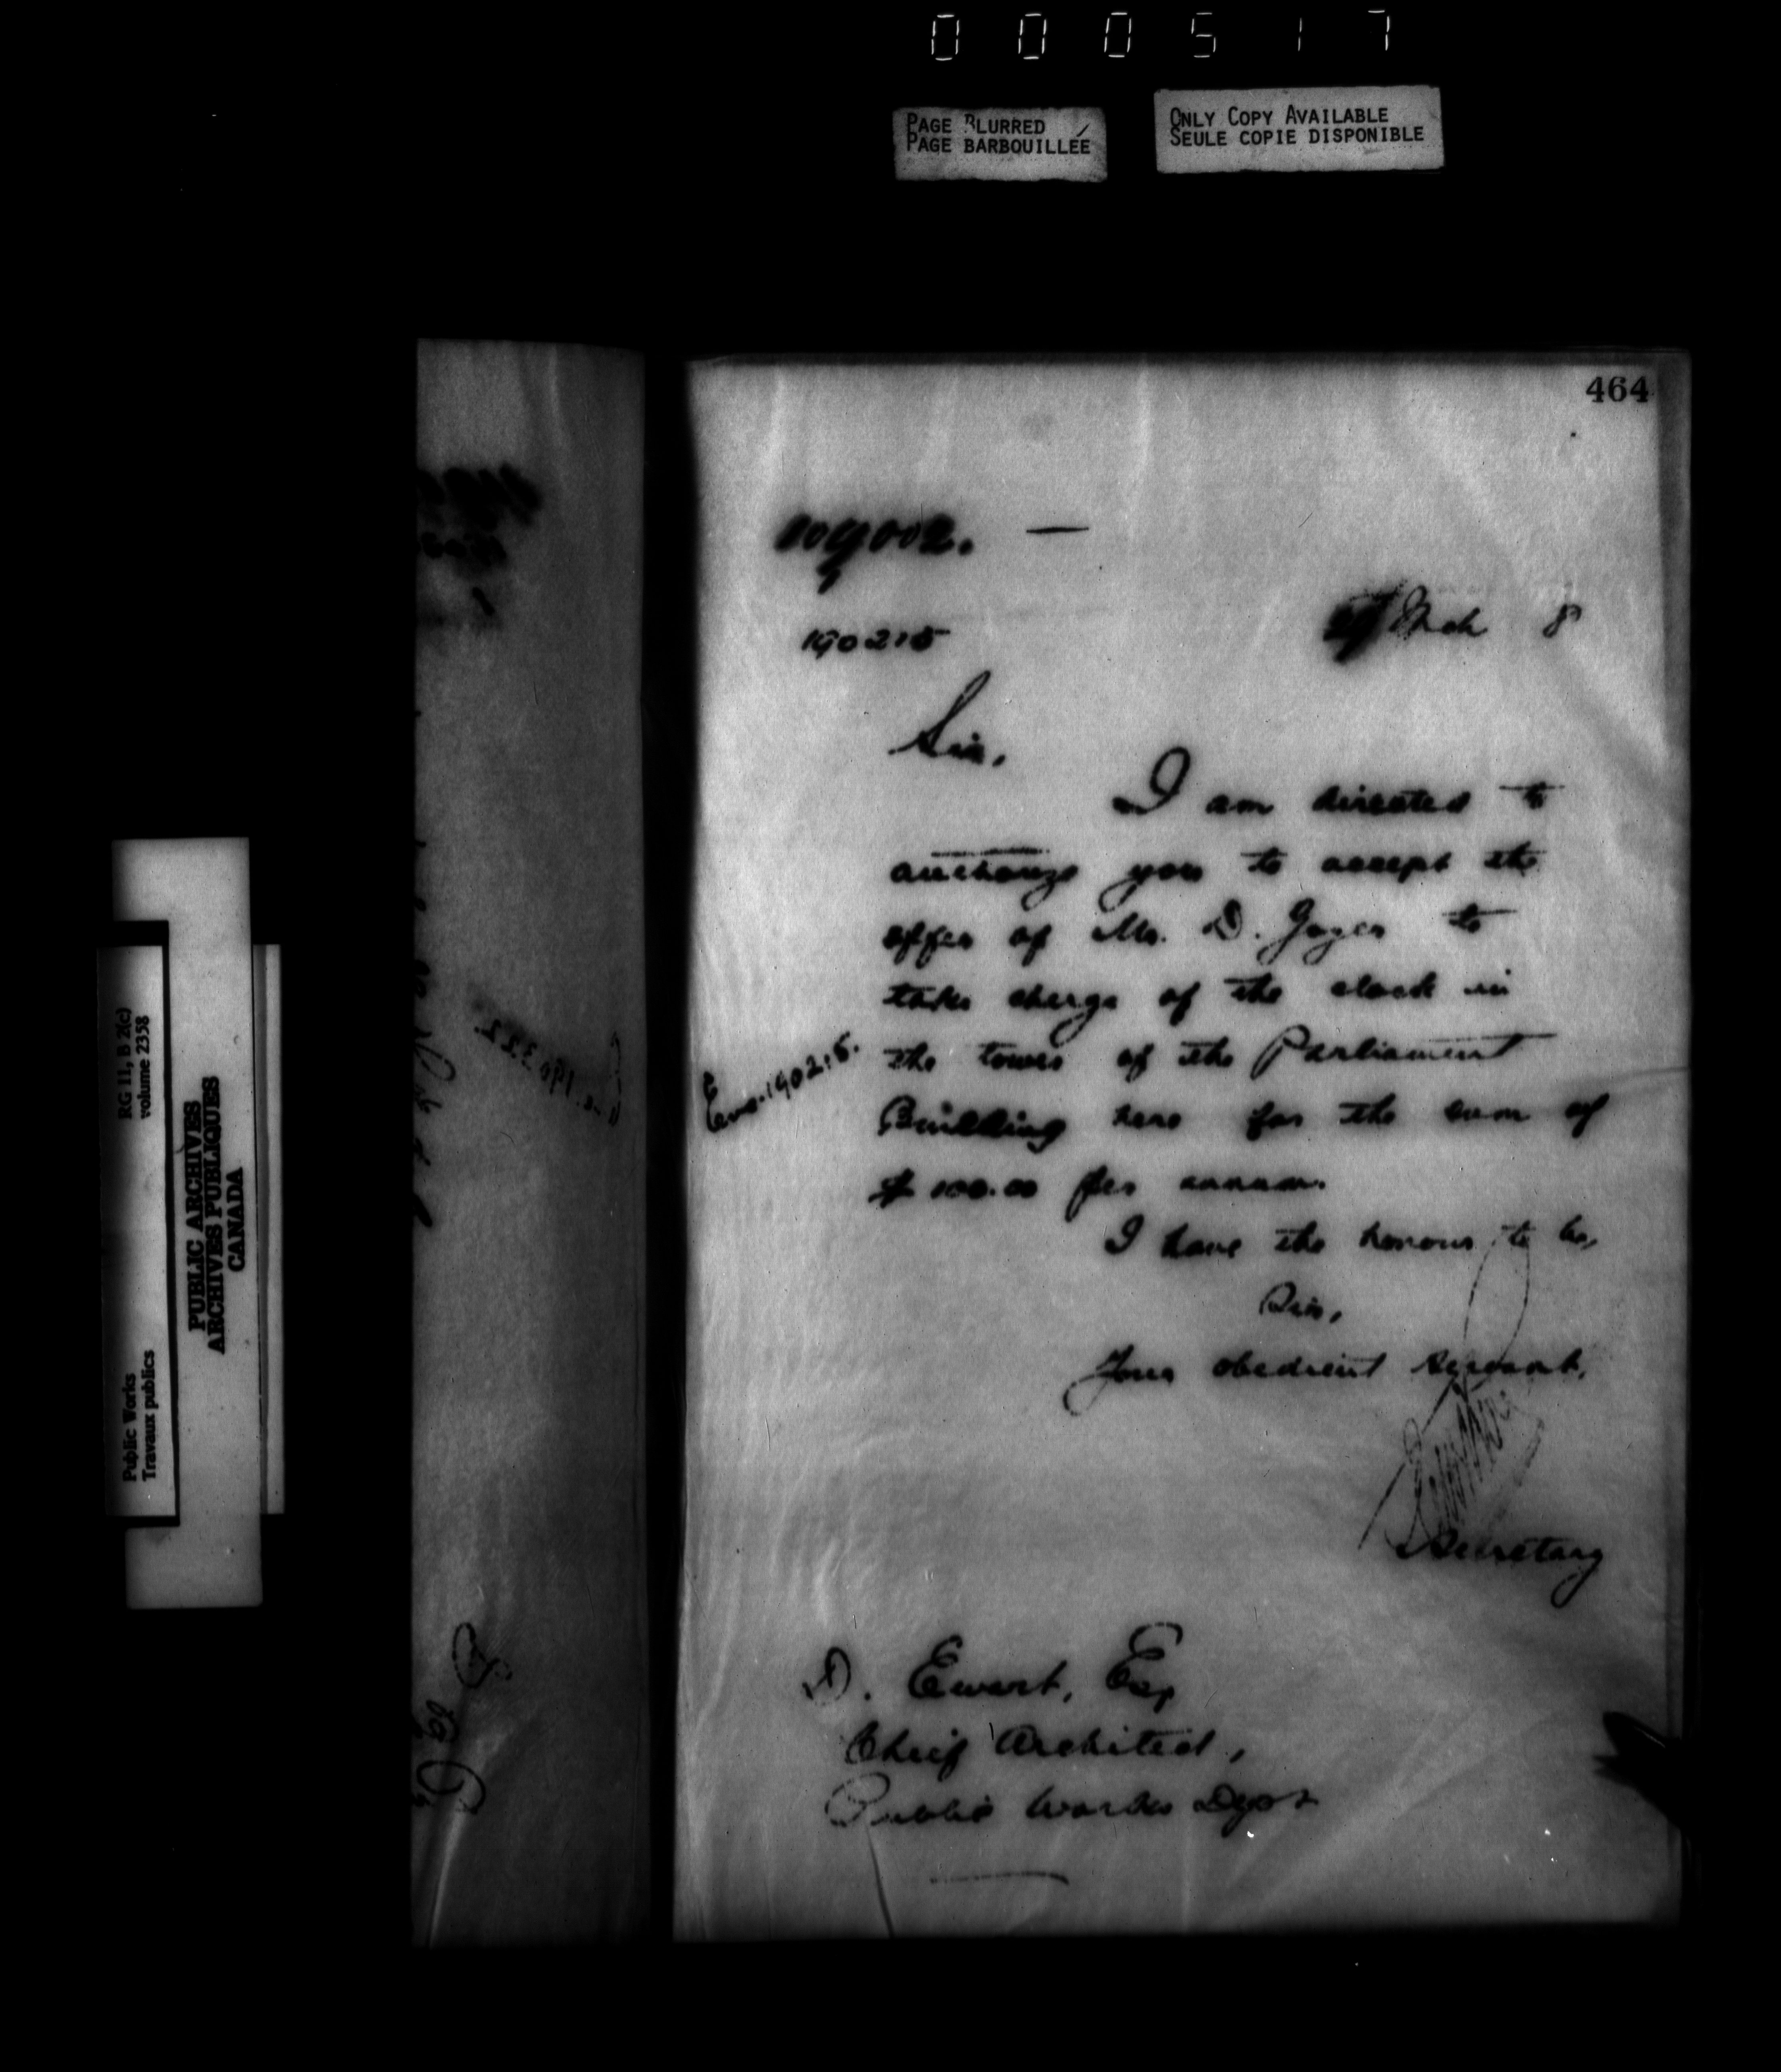 000517
PAGE BLURRED
PAGE BARBOUILLÉE
ONLY COPY AVAILABLE
SEULE COPIE DISPONIBLE
464
190215
Mch 8
Sir,
I am directed to
authorize you to accept the
offer of Mr. D. to
take charge of the clock in
the tower of the Parliament
Building here for the sum of
$100.00 per annum.
I have the honour to be,
Sir,
Your obedient servant,
Secretary
Enc. 190215.
D. Ewart, Esq
Chief Architect,
Public Works Dept
RG 11, B 2(c)
volume 2358
Public Works
Travaux publics
PUBLIC ARCHIVES
ARCHIVES PUBLIQUES
CANADA